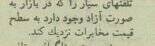 تلفنهای سیار را که در بازار به
صورت آزاد وجود دارد به سطح
قیمت مخابرات نزدیك کند.